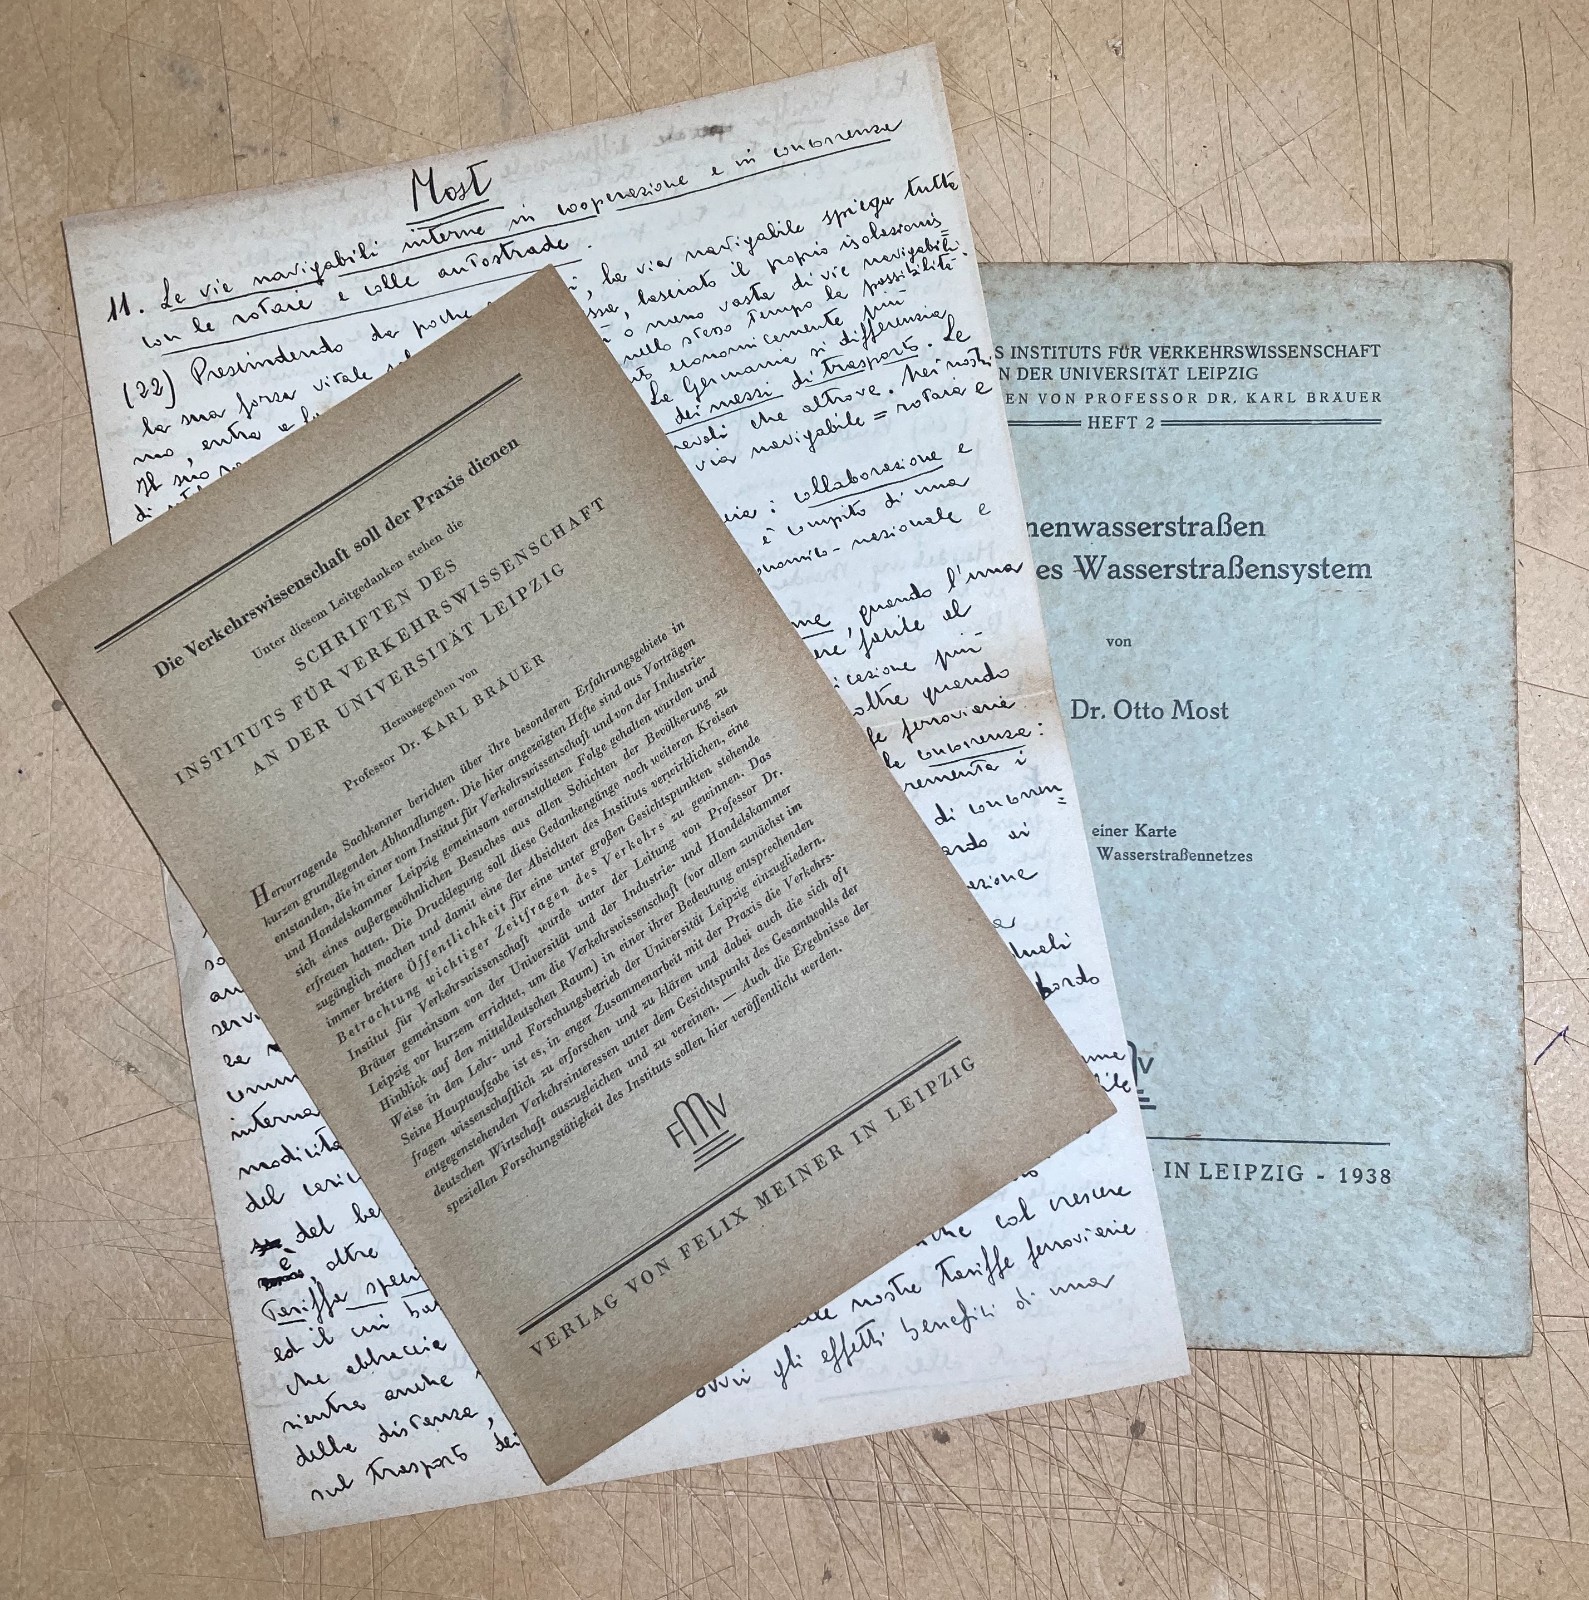 Most
11. Le vie navigabili interne in cooperazione e in concorrenza
con le rotaie e colle autostrade.
(22) Presindendo da poche , la via navigabile spiega tutta
la sua forza vitale lasciato il proprio isolazionis=
mo, entra o meno vasta di vie navigabili.
Il suo nello stesso tempo la possibilità
di economicamente più
La Germania si differenzia
dei mezzi di trasporto. Le
che altrove. Nei nostri
via navigabile = rotaia e
: collaborazione e
è compito di una
economico-nazionale e
, quando l'una
facile al
più
oltre quando
ferrovierie
la concorrenza:
i
di concorren=
bordo
interna
modicità
del caric
del be
è, oltre
Tariffa spec
ed il cui ba
che abbraccia
rientra anche
della distanza,
sul trasporto dei
col crescere
nostre tariffe ferrovierie
ovvii gli effetti benefici di una
Die Verkehrswissenschaft soll der Praxis dienen
Unter diesem Leitgedanken stehen die
SCHRIFTEN DES
INSTITUTS FÜR VERKEHRSWISSENSCHAFT
AN DER UNIVERSITÄT LEIPZIG
Herausgegeben von
Professor Dr. KARL BRÄUER
Hervorragende Sachkenner berichten über ihre besonderen Erfahrungsgebiete in
kurzen grundlegenden Abhandlungen. Die hier angezeigten Hefte sind aus Vorträgen
entstanden, die in einer vom Institut für Verkehrswissenschaft und von der Industrie-
und Handelskammer Leipzig gemeinsam veranstalteten Folge gehalten wurden und
sich eines außergewöhnlichen Besuches aus allen Schichten der Bevölkerung zu
erfreuen hatten. Die Drucklegung soll diese Gedankengänge noch weiteren Kreisen
zugänglich machen und damit eine der Absichten des Instituts verwirklichen, eine
immer breitere Öffentlichkeit für eine unter großen Gesichtspunkten stehende
Betrachtung wichtiger Zeitfragen des Verkehrs zu gewinnen. Das
Institut für Verkehrswissenschaft wurde unter der Leitung von Professor Dr.
Bräuer gemeinsam von der Universität und der Industrie- und Handelskammer
Leipzig vor kurzem errichtet, um die Verkehrswissenschaft (vor allem zunächst im
Hinblick auf den mitteldeutschen Raum) in einer ihrer Bedeutung entsprechenden
Weise in den Lehr- und Forschungsbetrieb der Universität Leipzig einzugliedern.
Seine Hauptaufgabe ist es, in enger Zusammenarbeit mit der Praxis die Verkehrs-
fragen wissenschaftlich zu erforschen und zu klären und dabei auch die sich oft
entgegenstehenden Verkehrsinteressen unter dem Gesichtspunkt des Gesamtwohls der
deutschen Wirtschaft auszugleichen und zu vereinen. — Auch die Ergebnisse der
speziellen Forschungstätigkeit des Instituts sollen hier veröffentlicht werden.
FMV
VERLAG VON FELIX MEINER IN LEIPZIG
S INSTITUTS FÜR VERKEHRSWISSENSCHAFT
N DER UNIVERSITÄT LEIPZIG
EN VON PROFESSOR DR. KARL BRÄUER
HEFT 2
nenwasserstraßen
es Wasserstraßensystem
von
Dr. Otto Most
einer Karte
Wasserstraßennetzes
IN LEIPZIG - 1938